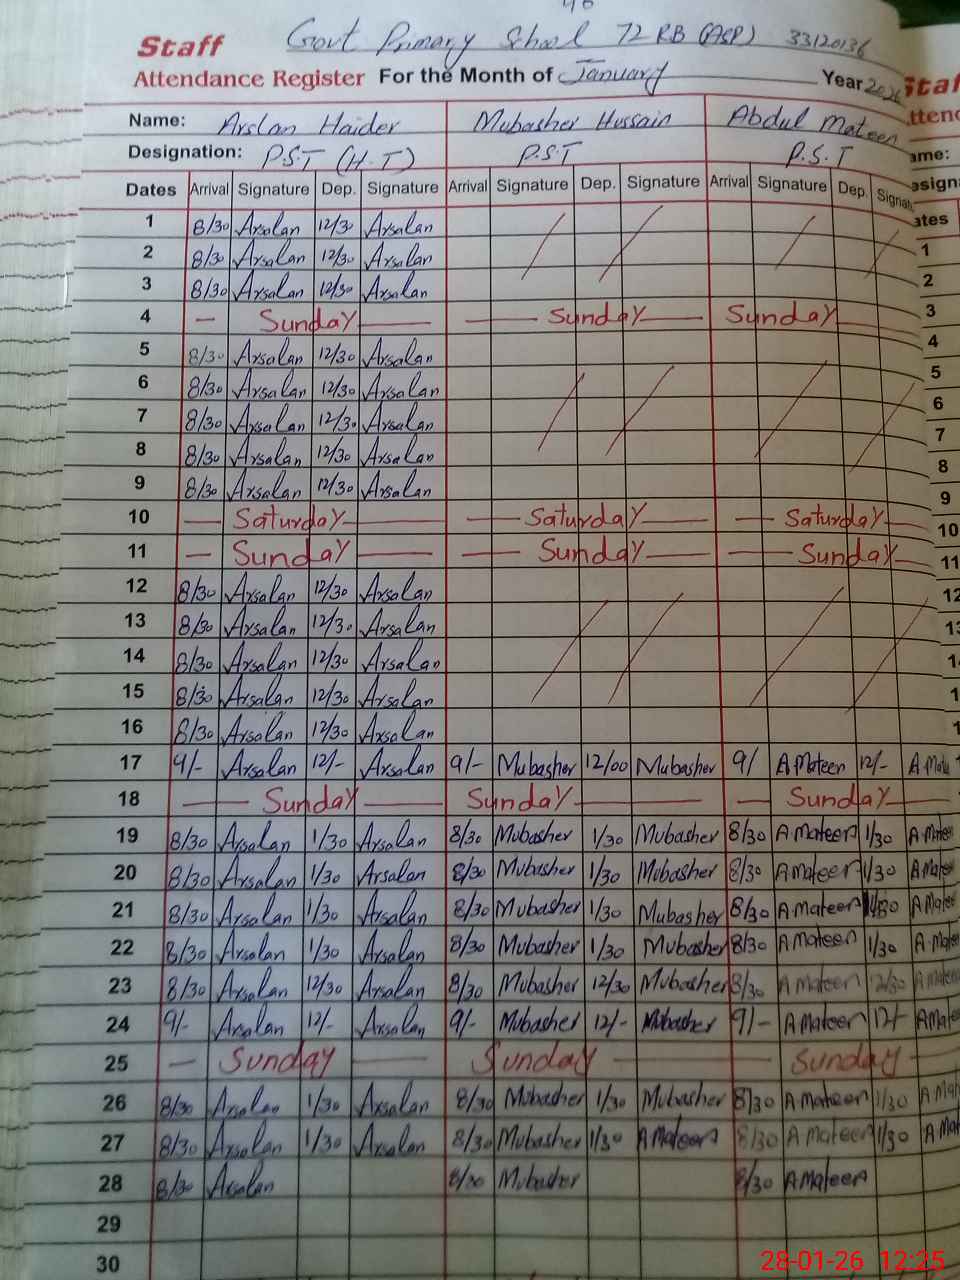 Staff Govt Primary School 72 RB (ASP) 33120136
Attendance Register For the Month of January Year 2026
Name: Arslan Haider Mubasher Hussain Abdul Mateen
Designation: P.S.T (H.T) P.S.T P.S.T
Dates Arrival Signature Dep. Signature Arrival Signature Dep. Signature Arrival Signature Dep. Signat
1 8/30 Arsalan 12/30 Arsalan
2 8/30 Arsalan 12/30 Arsalan
3 8/30 Arsalan 12/30 Arsalan
4 — Sunday — — Sunday — Sunday —
5 8/30 Arsalan 12/30 Arsalan
6 8/30 Arsalan 12/30 Arsalan
7 8/30 Arsalan 12/30 Arsalan
8 8/30 Arsalan 12/30 Arsalan
9 8/30 Arsalan 12/30 Arsalan
10 — Saturday — — Saturday — — Saturday —
11 — Sunday — — Sunday — — Sunday —
12 8/30 Arsalan 12/30 Arsalan
13 8/30 Arsalan 12/30 Arsalan
14 8/30 Arsalan 12/30 Arsalan
15 8/30 Arsalan 12/30 Arsalan
16 8/30 Arsalan 12/30 Arsalan
17 9/- Arsalan 12/- Arsalan 9/- Mubasher 12/00 Mubasher 9/ A Mateen 12/- A Mate
18 — Sunday — Sunday — — Sunday —
19 8/30 Arsalan 1/30 Arsalan 8/30 Mubasher 1/30 Mubasher 8/30 A Mateen 1/30 A Mateen
20 8/30 Arsalan 1/30 Arsalan 8/30 Mubasher 1/30 Mubasher 8/30 A Mateen 1/30 A Mateen
21 8/30 Arsalan 1/30 Arsalan 8/30 Mubasher 1/30 Mubasher 8/30 A Mateen 1/30 A Mateen
22 8/30 Arsalan 1/30 Arsalan 8/30 Mubasher 1/30 Mubasher 8/30 A Mateen 1/30 A Mateen
23 8/30 Arsalan 12/30 Arsalan 8/30 Mubasher 12/30 Mubasher 8/30 A Mateen 12/30 A Mateen
24 9/- Arsalan 12/- Arsalan 9/- Mubasher 12/- Mubasher 9/- A Mateen 12/- A Mate
25 — Sunday — Sunday — — Sunday —
26 8/30 Arsalan 1/30 Arsalan 8/30 Mubasher 1/30 Mubasher 8/30 A Mateen 1/30 A Mat
27 8/30 Arsalan 1/30 Arsalan 8/30 Mubasher 1/30 A Mateen 8/30 A Mateen 1/30 A Mat
28 8/30 Arsalan 8/30 Mubasher 8/30 A Mateen
29
30
28-01-26 12:25